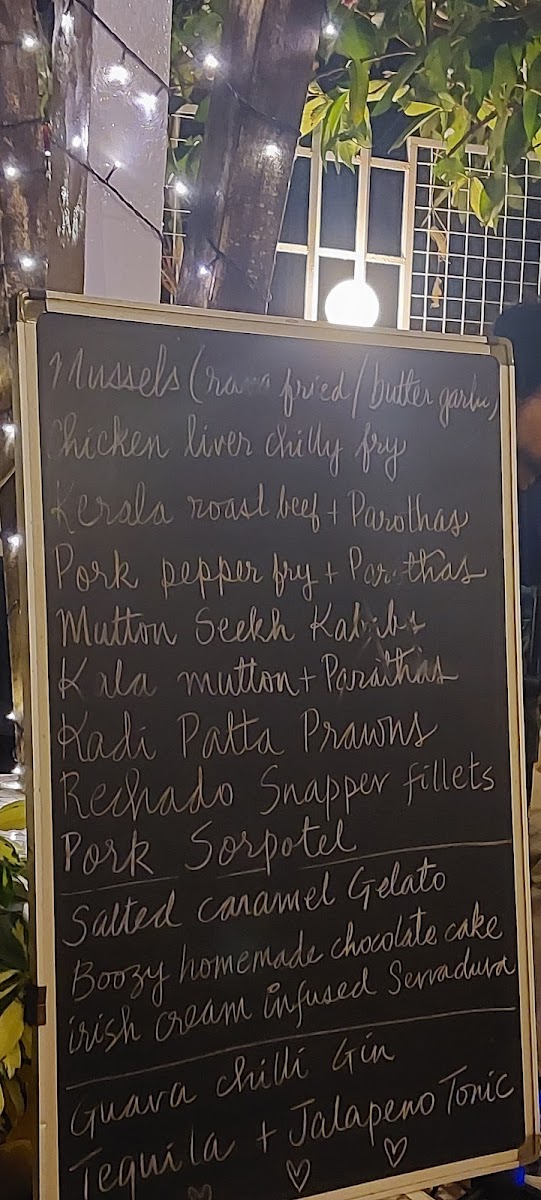 Mussels (rava fried / butter garlic)
Chicken liver chilly fry
Kerala roast beef + Parothas
Pork pepper fry + Parothas
Mutton Seekh Kababs
Kala mutton + Parathas
Kadi Patta Prawns
Rechado Snapper fillets
Pork Sorpotel
Salted caramel Gelato
Boozy homemade chocolate cake
irish cream infused Serradura
Guava chilli Gin
Tequila + Jalapeno Tonic